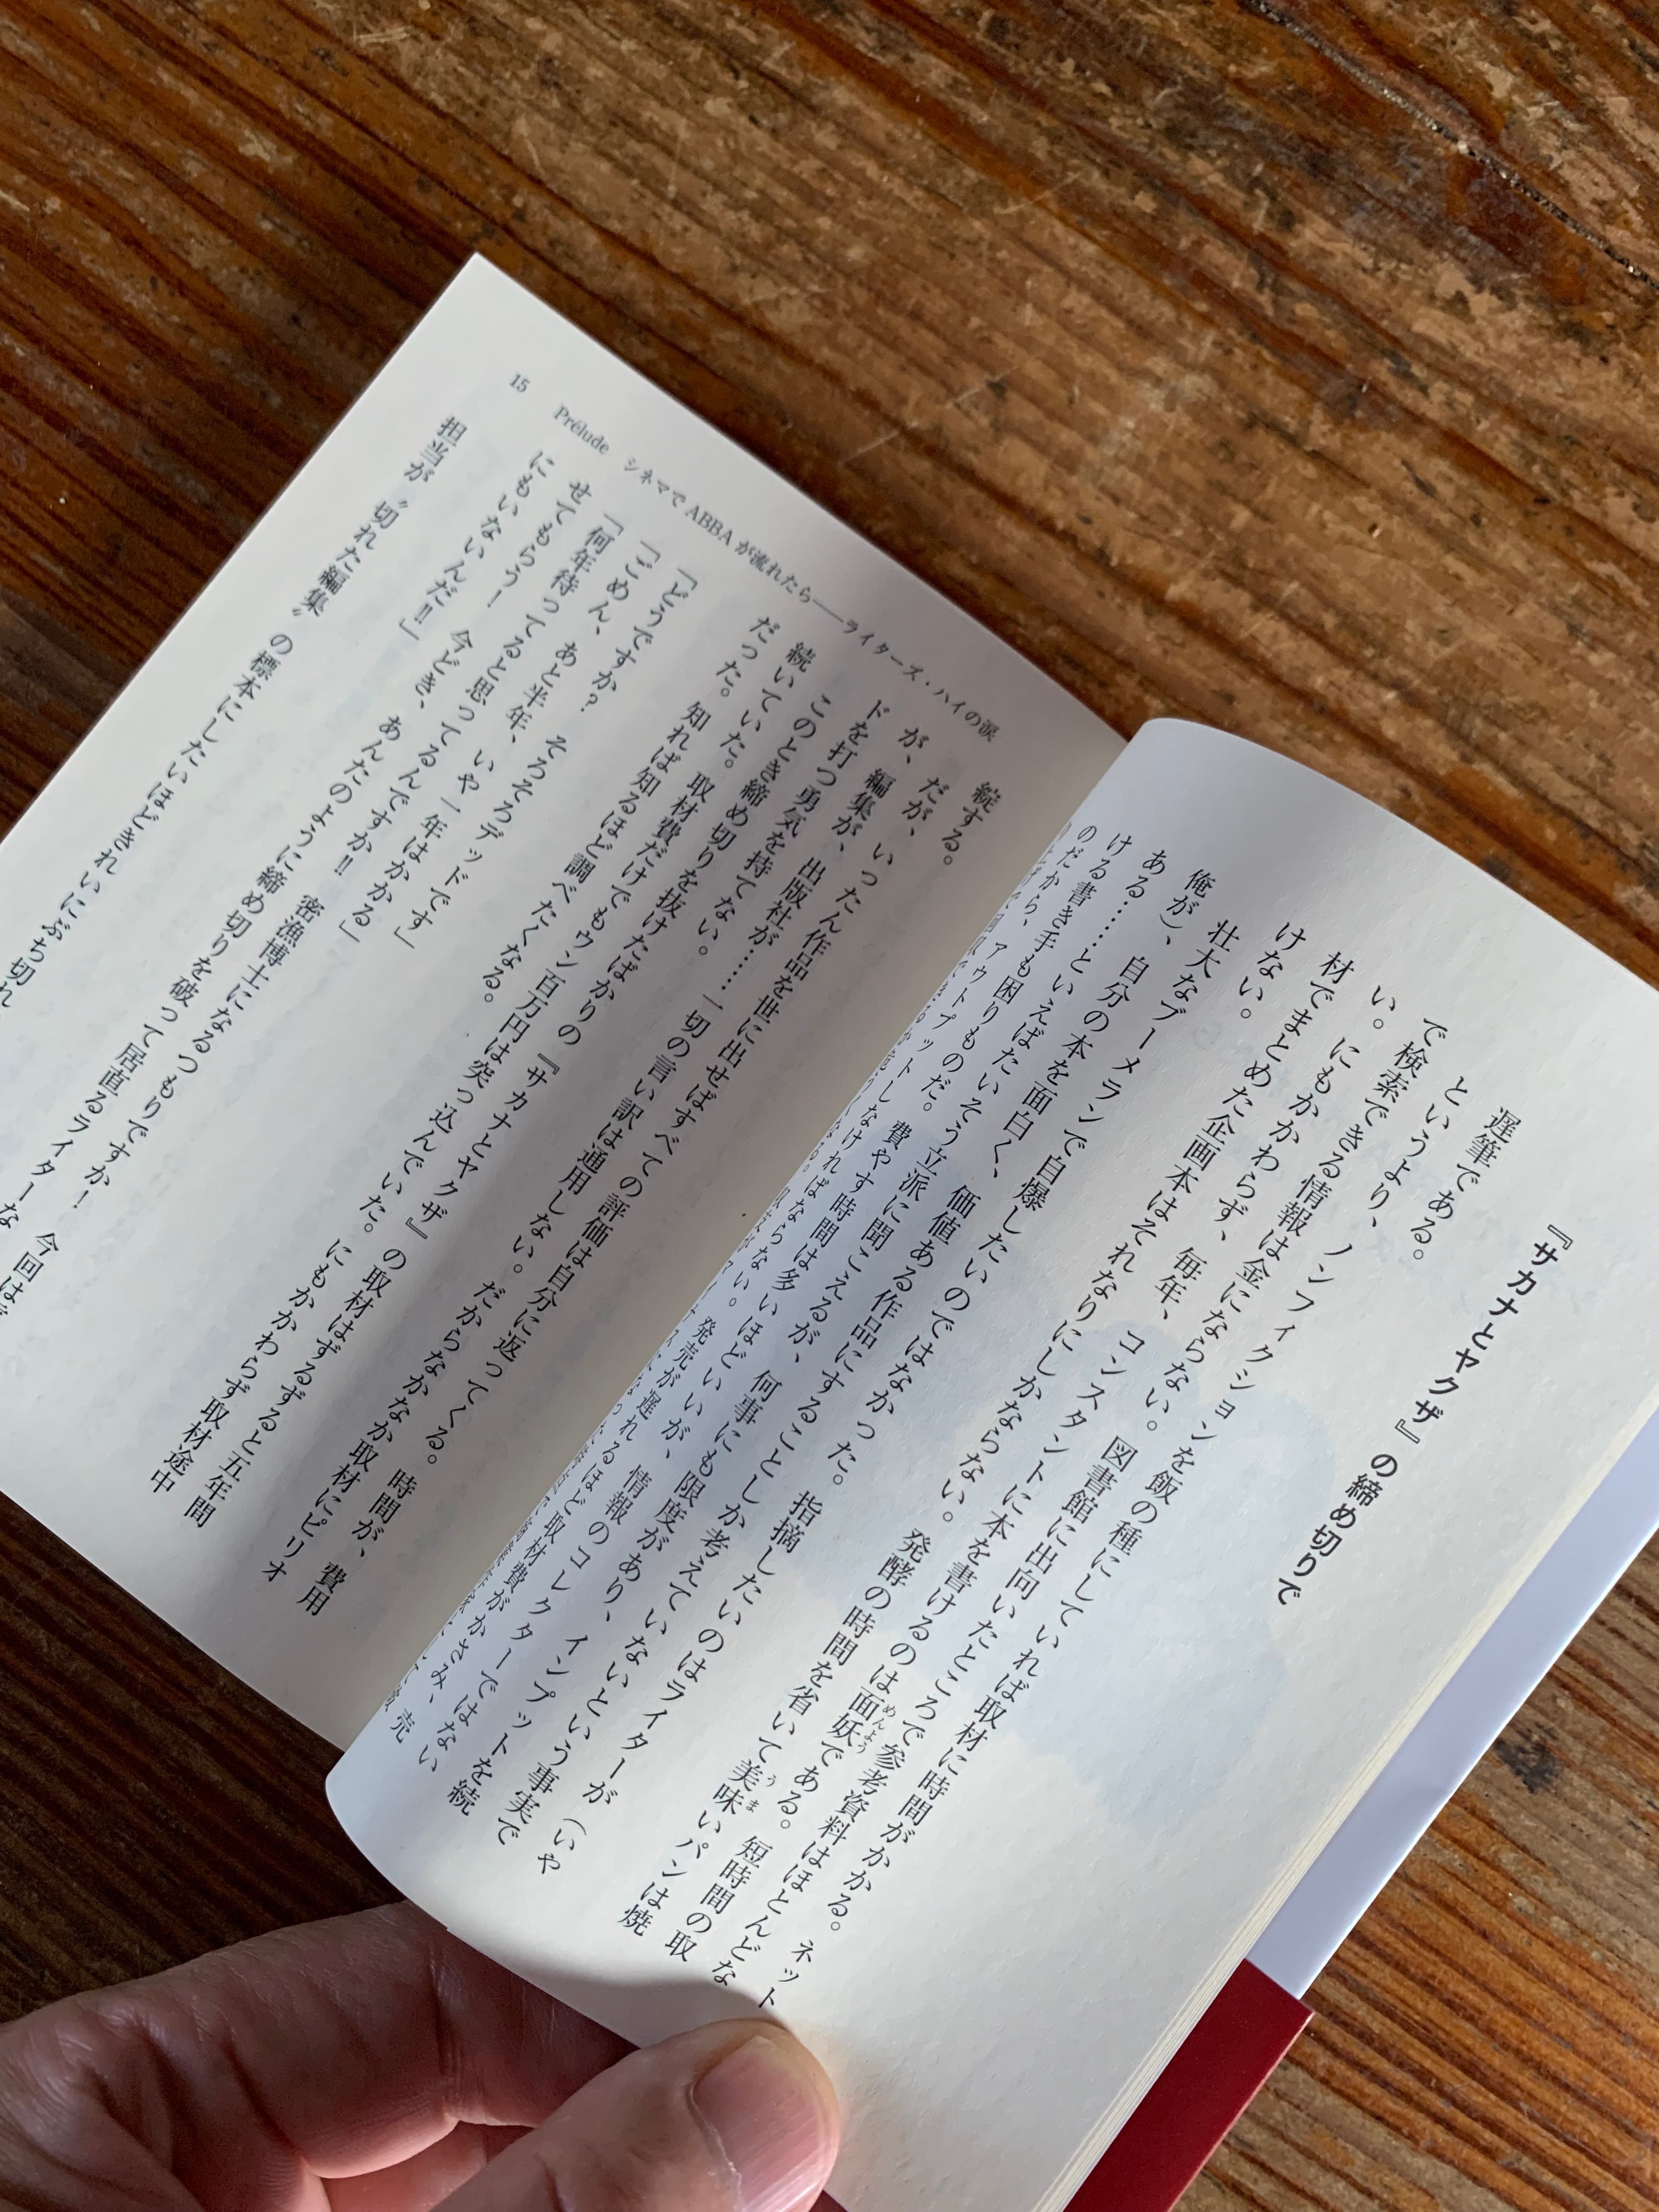 『サカナとヤクザ』の締め切りで
遅筆である。
というより、ノンフィクションを飯の種にしていれば取材に時間がかかる。ネット
で検索できる情報は金にならない。図書館に出向いたところで参考資料はほとんどな
い。にもかかわらず、毎年、コンスタントに本を書けるのは面妖である。短時間の取
材でまとめた企画本はそれなりにしかならない。発酵の時間を省いて美味いパンは焼
けない。
壮大なブーメランで自爆したいのではなかった。指摘したいのはライターが（いや
俺が）、自分の本を面白く、価値ある作品にすることしか考えていないという事実で
ある……といえばたいそう立派に聞こえるが、何事にも限度があり、インプットを続
ける書き手も困りものだ。費やす時間は多いほどいいが、情報のコレクターではない
のだから、アウトプットしなければならない。発売が遅れるほど取材費がかさみ、売
綻する。
だが、いったん作品を世に出せばすべての評価は自分に返ってくる。時間が、費用
が、編集が、出版社が……一切の言い訳は通用しない。だからなかなか取材にピリオ
ドを打つ勇気を持てない。
このとき締め切りを抜けたばかりの『サカナとヤクザ』の取材はずるずると五年間
続いていた。取材費だけでもウン百万円は突っ込んでいた。にもかかわらず取材途中
だった。知れば知るほど調べたくなる。
「どうですか？　そろそろデッドです」
「ごめん、あと半年、いや一年はかかる」
「何年待ってると思ってるんですか‼　密漁博士になるつもりですか！　今回は
せてもらう！　今どき、あんたのように締め切りを破って居直るライターな
にもいないんだ‼」
担当が〝切れた編集〟の標本にしたいほどきれいにぶち切れ
15　Prélude　シネマで ABBA が流れたら――ライターズ・ハイの涙